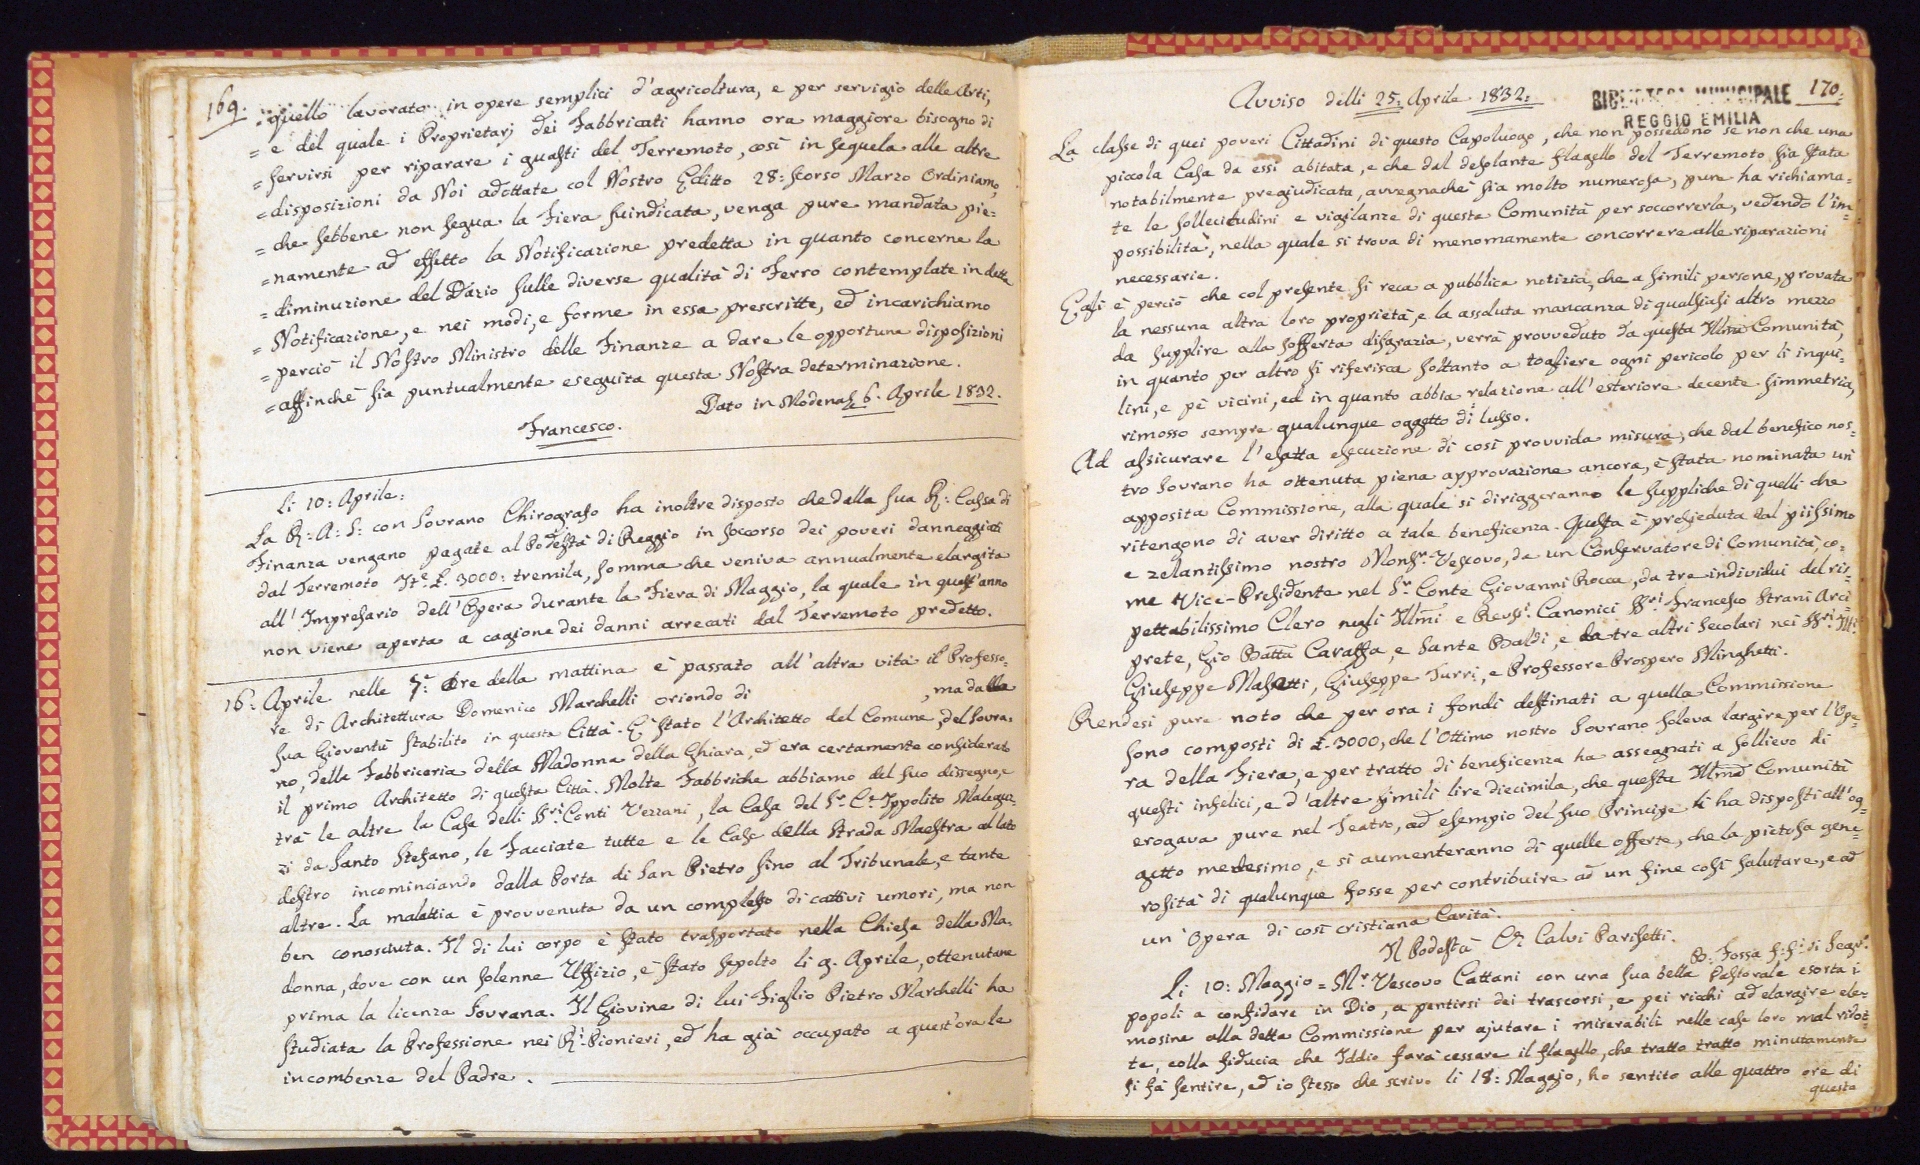 169.
quello lavorato in opere semplici d'agricoltura, e per servigio delle Arti,
= e del quale i Proprietarj dei Fabbricati hanno ora maggiore bisogno di
= servirsi per riparare i guasti del Terremoto, così in sequela alle altre
= disposizioni da Noi adottate col Nostro Editto 28: scorso Marzo Ordiniamo,
= che sebbene non segua la Fiera suindicata, venga pure mandata pie=
= namente ad effetto la Notificazione predetta in quanto concerne la
= diminuzione del Dazio sulle diverse qualità di Ferro contemplate in detta
= Notificazione, e nei modi, e forme in essa prescritte, ed incarichiamo
= perciò il Nostro Ministro delle Finanze a dare le opportune disposizioni
= affinchè sia puntualmente eseguita questa Nostra determinazione.
Dato in Modena li 6. Aprile 1832.
Francesco.
Li 10: Aprile:
La R: A: S: con Sovrano Chirografo ha inoltre disposto che dalla sua R: Cassa di
Finanza vengano pagate al Podestà di Reggio in soccorso dei poveri danneggiati
dal Terremoto It.e £. 3000: tremila, somma che veniva annualmente elargita
all'Impresario dell'Opera durante la Fiera di Maggio, la quale in quest'anno
non viene aperta a cagione dei danni arrecati dal Terremoto predetto.
16: Aprile nelle 7: Ore della mattina è passato all'altra vita il Professo=
re di Architettura Domenico Marchelli oriondo di , ma dalla
sua Gioventù stabilito in questa Città. È stato l'Architetto del Comune, del Sovra=
no, della Fabbriceria della Madonna della Ghiara, ed era certamente considerato
il primo Architetto di questa Città. Molte Fabbriche abbiamo del suo dissegno, e
trà le altre la Casa delli SS.ri Conti Vezzani, la Casa del S.r C.te Ippolito Maleguz=
zi da Santo Stefano, le Facciate tutte e le Case della Strada Maestra al lato
destro incominciando dalla Porta di San Pietro sino al Tribunale, e tante
altre. La malattia è provvenuta da un complesso di cattivi umori, ma non
ben conosciuta. Il di lui corpo è stato trasportato nella Chiesa della Ma=
donna, dove con un solenne Uffizio, è stato sepolto li 9. Aprile, ottenutane
prima la licenza Sovrana. Il Giovine di lui Figlio Pietro Marchelli ha
studiata la Professione nei R.i Pionieri, ed ha già occupato a quest'ora le
incombenze del Padre.
170.
BIBLIOTECA MUNICIPALE
REGGIO EMILIA
Avviso delli 25: Aprile 1832:
La classe di quei poveri Cittadini di questo Capoluogo, che non possedono se non che una
piccola Casa da essi abitata, e che dal desolante flagello del Terremoto sia stata
notabilmente pregiudicata, avvegnachè sia molto numerosa, pure ha richiama=
te le sollecitudini e vigilanze di questa Comunità per soccorrerla, vedendo l'im=
possibilità, nella quale si trova di menomamente concorrere alle riparazioni
necessarie.
Egli è perciò che col presente si reca a pubblica notizia, che a simili persone, provata
la nessuna altra loro proprietà, e la assoluta mancanza di qualsiasi altro mezzo
da supplire alla sofferta disgrazia, verrà provveduto da questa Illma Comunità,
in quanto per altro si riferisca soltanto a togliere ogni pericolo per li inqui=
lini, e pè vicini, ed in quanto abbia relazione all'esteriore decente simmetria,
rimosso sempre qualunque oggetto di lusso.
Ad assicurare l'esatta esecuzione di così provvida misura, che dal benefico nos=
tro Sovrano ha ottenuta piena approvazione ancora, è stata nominata un'
apposita Commissione, alla quale si diriggeranno le suppliche di quelli che
ritengono di aver diritto a tale beneficenza. Questa è presieduta dal piissimo
e zelantissimo nostro Mons.r Vescovo, da un Conservatore di Comunità, co=
me Vice-Presidente nel S.r Conte Giovanni Rocca, da tre individui del ris=
pettabilissimo Clero negli Illmi e Revss.i Canonici SS.ri Francesco Strani Arci=
prete, Gio Batta Caraffa, e Sante Baldi, e da tre altri Secolari nei SS.ri Illi.
Giuseppe Masetti, Giuseppe Turri, e Professore Prospero Minghetti.
Rendesi pure noto che per ora i fondi destinati a quella Commissione
sono composti di £. 3000, che l'Ottimo nostro Sovrano soleva largire per l'Ope=
ra della Fiera, e per tratto di beneficenza ha assegnati a sollievo di
questi infelici, e d'altre simili lire diecimila, che questa Illma Comunità
erogava pure nel Teatro, ad esempio del suo Principe li ha disposti all'og=
getto medesimo, e si aumenteranno di quelle offerte, che la pietosa gene=
rosità di qualunque fosse per contribuire ad un fine così salutare, e ad
un'Opera di così cristiana Carità.
Il Podestà Calvi Parisetti.
P: Fossa f.f. di Segr.o
Li 10: Maggio = M.r Vescovo Cattani con una sua bella Pastorale esorta i
popoli a confidare in Dio, a pentirsi dei trascorsi, e pei ricchi ad elargire ele=
mosine alla detta Commissione per ajutare i miserabili nelle case loro mal ridot=
te, colla fiducia che Iddio farà cessare il flagello, che tratto tratto minutamente
si fà sentire, ed io stesso che scrivo li 18: Maggio, ho sentito alle quattro ore di
questa